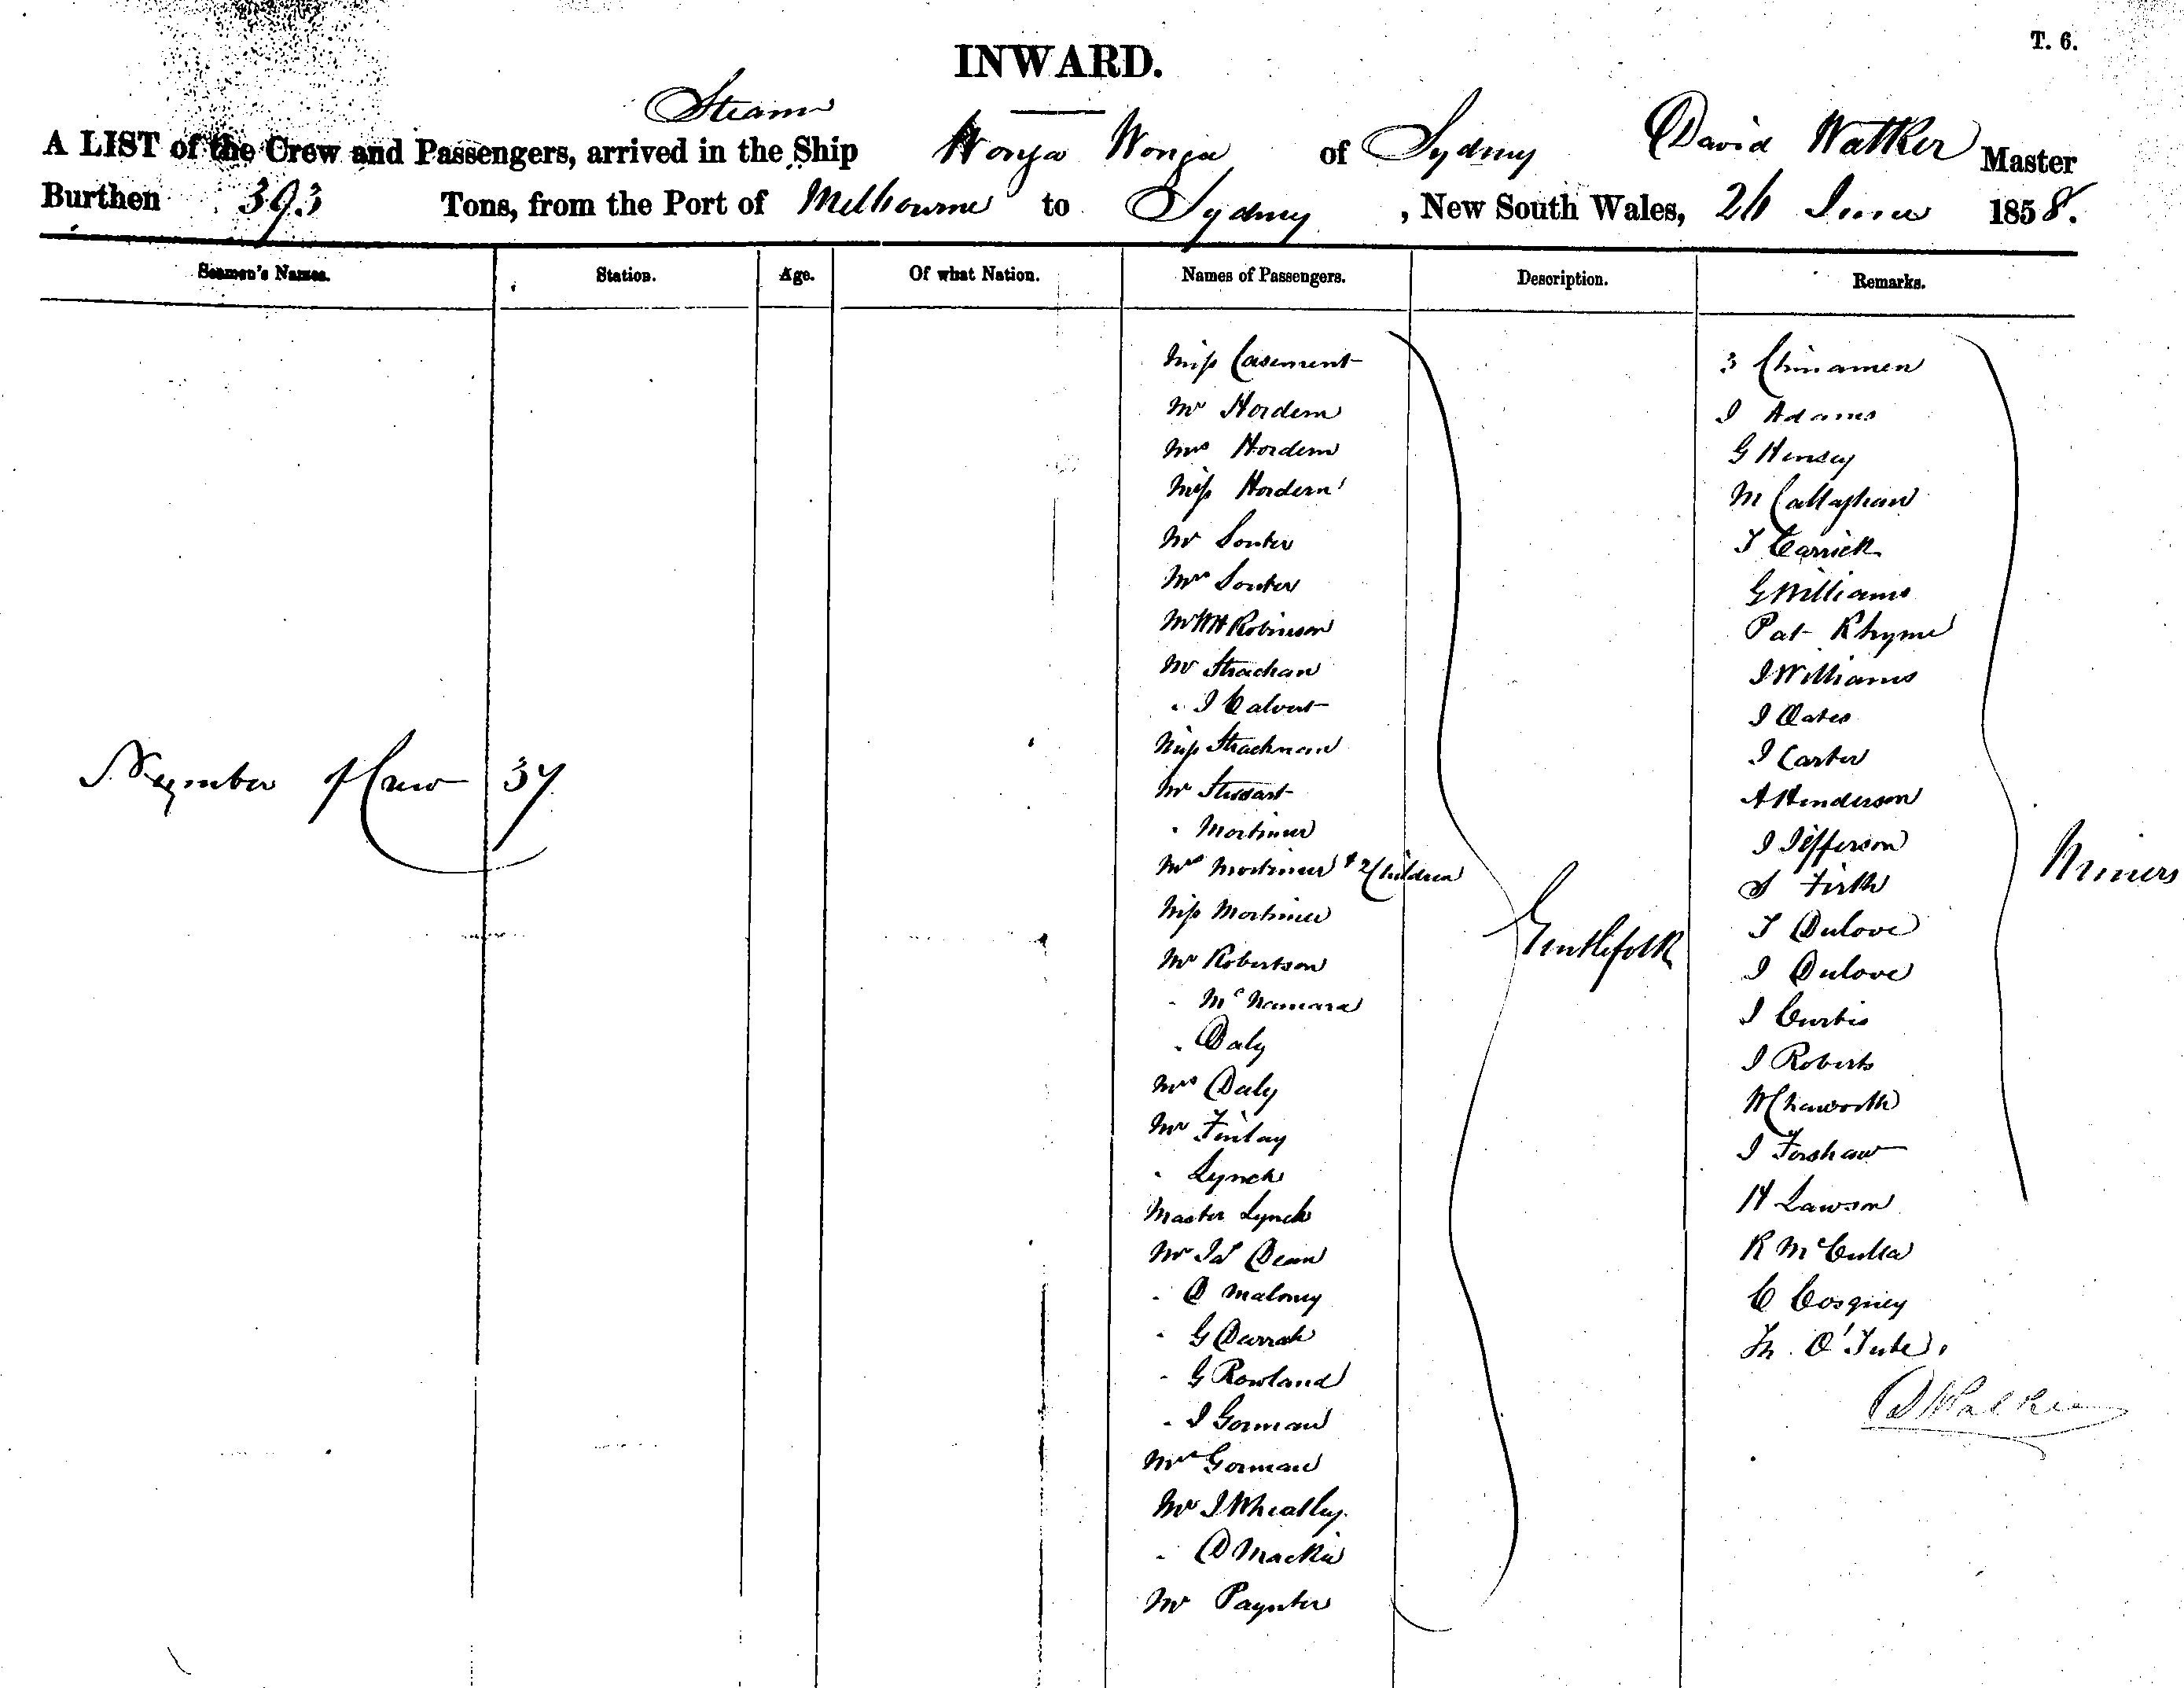 T. 6.
INWARD.
Steam
A LIST of the Crew and Passengers, arrived in the Ship Wonga Wonga of Sydney David Walker Master
Burthen 393 Tons, from the Port of Melbourne to Sydney, New South Wales, 26 June 1858.
Seamen's Names. Station. Age. Of what Nation. Names of Passengers. Description. Remarks.
Miss Casement
Mr Hordern
Mrs Hordern
Miss Hordern
Mr Souter
Mrs Souter
Mr WH Robinson
Mr Strachan
" J Calvert
Miss Strachan
Mr Stewart
" Mortimer
Mrs Mortimer & 2 Children
Miss Mortimer
Mr Robertson
" McNamara
" Daly
Mrs Daly
Mr Finlay
" Lynch
Master Lynch
Mr Jas Dean
" D Maloney
" G Darrah
" G Rowland
" J Gorman
Mrs Gorman
Mr J Wheatley
" D Mackie
Mr Paynter
Gentlefolk
3 Chinamen
J Adams
G Hensey
M Callaghan
T Carrick
G Williams
Pat Rhyme
J Williams
J Oates
J Carter
A Henderson
J Jefferson
S Firth
T Dulove
J Dulove
J Curtis
J Roberts
W Chaworth
J Forshaw
H Lawson
R McCulla
C Cosgriey
Th. O'Tube
Miners
Number of Crew 37
D Walker